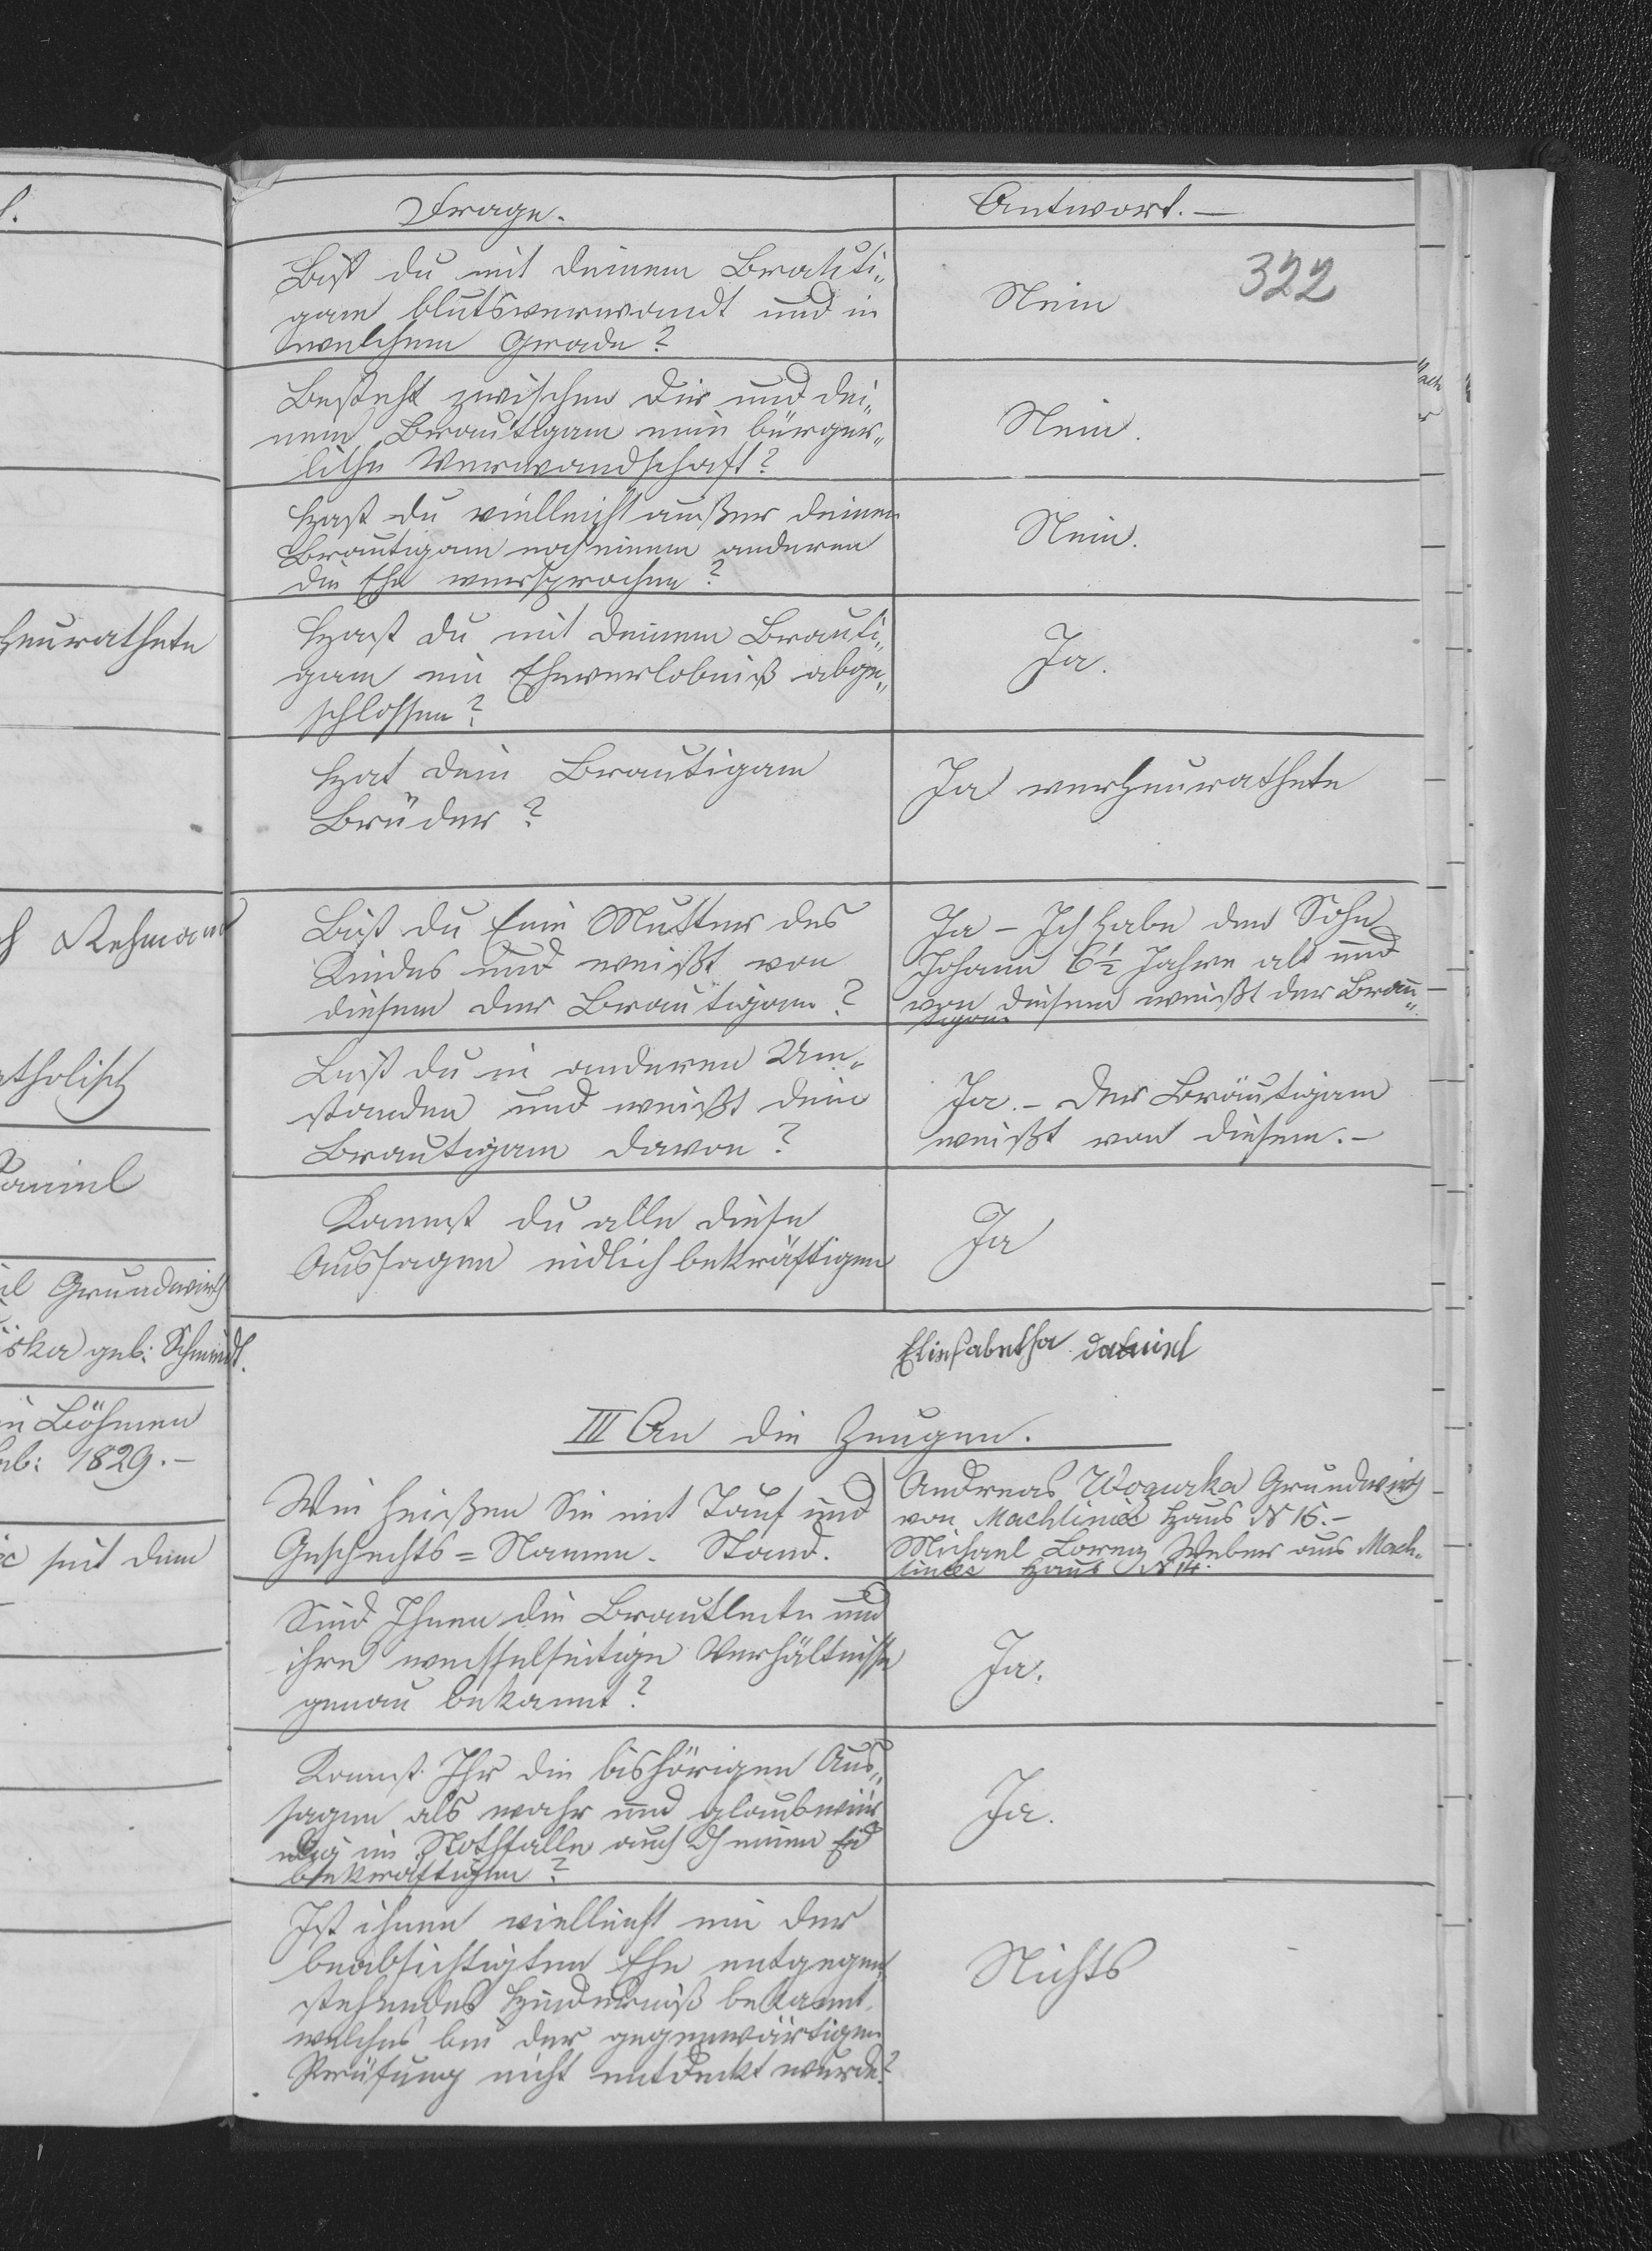 Frage.
Antwort. —
322
Bist du mit deinem Brauti„
gam blutsverwandt und in
welchem Grade?
Nein
Besteht zwischen dir und dei„
nem Brautigam eine bürger„
liche Verwandschaft?
Nein.
Hast du vielleicht außer deinem
Brautigam noch einem anderen
die Ehe versprochen?
Nein.
Hast du mit deinem Brauti„
gam ein Eheverlobniß abge„
schlossen?
Ja.
Hat dein Brautigam
Brüder?
Ja verheurathete
Bist du eine Mutter des
Kindes und weißt von
diesem der Brautigam?
Ja – Ich habe den Sohn
Johann 6½ Jahre alt und
von diesem weißt der Brau„
tigam
Bist du in anderen Um„
standen und weißt dein
Brautigam davon?
Ja. – Der Bräutigam
weißt von diesem. –
Kannst du alle diese
Aussagen eidlich bekräftigen
Ja
Elisabetha Daniel
III An die Zeugen.
Wie heißen Sie mit Tauf und
Geschechts = Namen. Stand.
Andreas Wogurka Grundwirth
von Machliniec Haus N 15. –
Michael Lorenz Weber aus Mach„
liniec Haus N 14.
Sind Ihnen die Brautleute und
ihre wechselseitige Verhältnisse
genau bekannt?
Ja.
Kannst Ihr die bishörigen Aus„
sagen als wahr und glaubwür
dig im Nothfalle auch einen Eid
bekraftigen?
Ja.
Ist ihnen vielleicht ein der
beabsichtigten Ehe entgegen
stehendes Hinderniß bekannt,
welches bei der gegenwärtigen
Prüfung nicht entdeckt wurde?
Nichts
heurathete
Rehmann
atholisch
Daniel
Grundwirth
iska geb: Schmidt.
in Böhmen
geb: 1829. –
seit dem